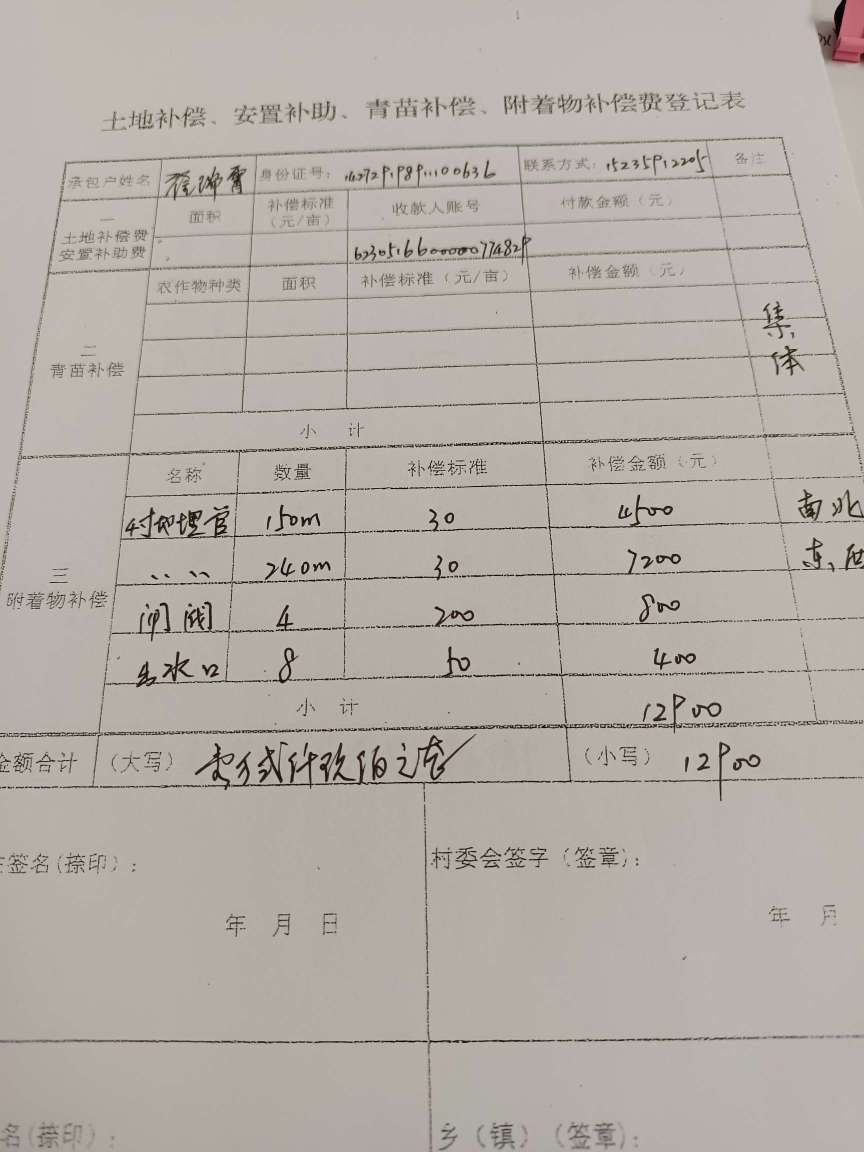 土地补偿、安置补助、青苗补偿、附着物补偿费登记表
承包户姓名 徐瑞霄 身份证号： 联系方式：15235912205 备注
一 土地补偿费 安置补助费 面积 补偿标准（元/亩） 收款人账号 付款金额（元）
6230516600000774829
二 青苗补偿 农作物种类 面积 补偿标准（元/亩） 补偿金额（元）
集
体
小 计
三 附着物补偿 名称 数量 补偿标准 补偿金额（元）
4寸地埋管 150m 30 4500 南北
〃 〃 240m 30 7200 东,西
闸阀 4 200 800
出水口 8 50 400
小 计 12900
金额合计 （大写） 壹万贰仟玖佰元整 （小写） 12900
签名(捺印)： 村委会签字（签章）：
年 月 日 年 月
名(捺印)： 乡（镇）（签章）：